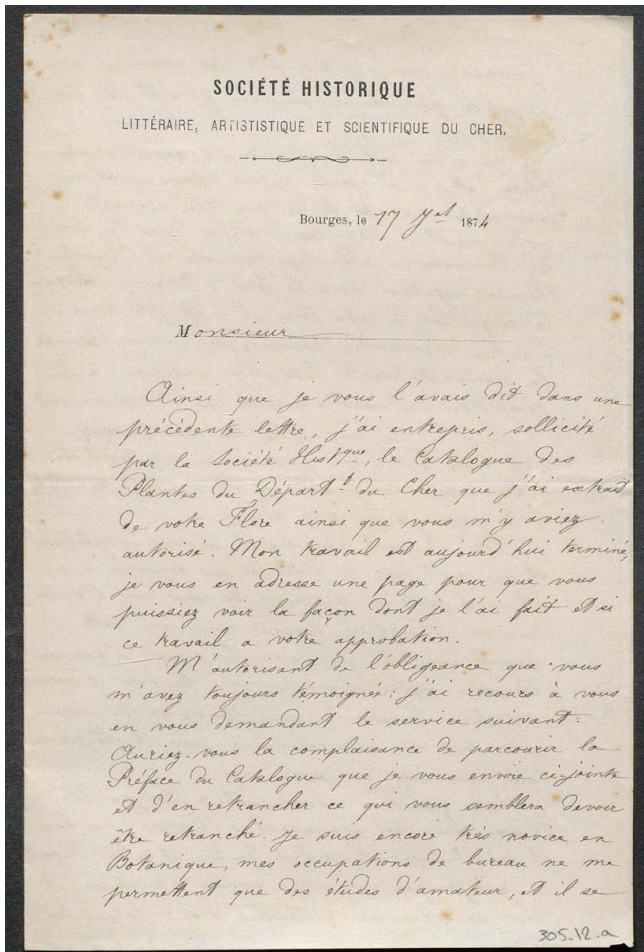 SOCIÉTÉ HISTORIQUE
LITTÉRAIRE, ARTISTISTIQUE ET SCIENTIFIQUE DU CHER,
Bourges, le 17 1874
Monsieur
Ainsi que je vous l'avais dit dans une
précédente lettre, j'ai entrepris, sollicité
par la Société Histque, le Catalogue des
Plantes du Départt du Cher que j'ai extrait
de votre Flore ainsi que vous m'y aviez
autorisé. Mon travail est aujourd'hui terminé,
je vous en adresse une page pour que vous
puissiez voir la façon dont je l'ai fait et si
ce travail a votre approbation.
M'autorisant de l'obligeance que vous
m'avez toujours témoignée : j'ai recours à vous
en vous demandant le service suivant :
Auriez-vous la complaisance de parcourir la
Préface du Catalogue que je vous envoie ci-jointe
et d'en retrancher ce qui vous semblera devoir
être retranché. Je suis encore très novice en
Botanique, mes occupations de bureau ne me
permettent que des études d'amateur, et il se
305-12-a